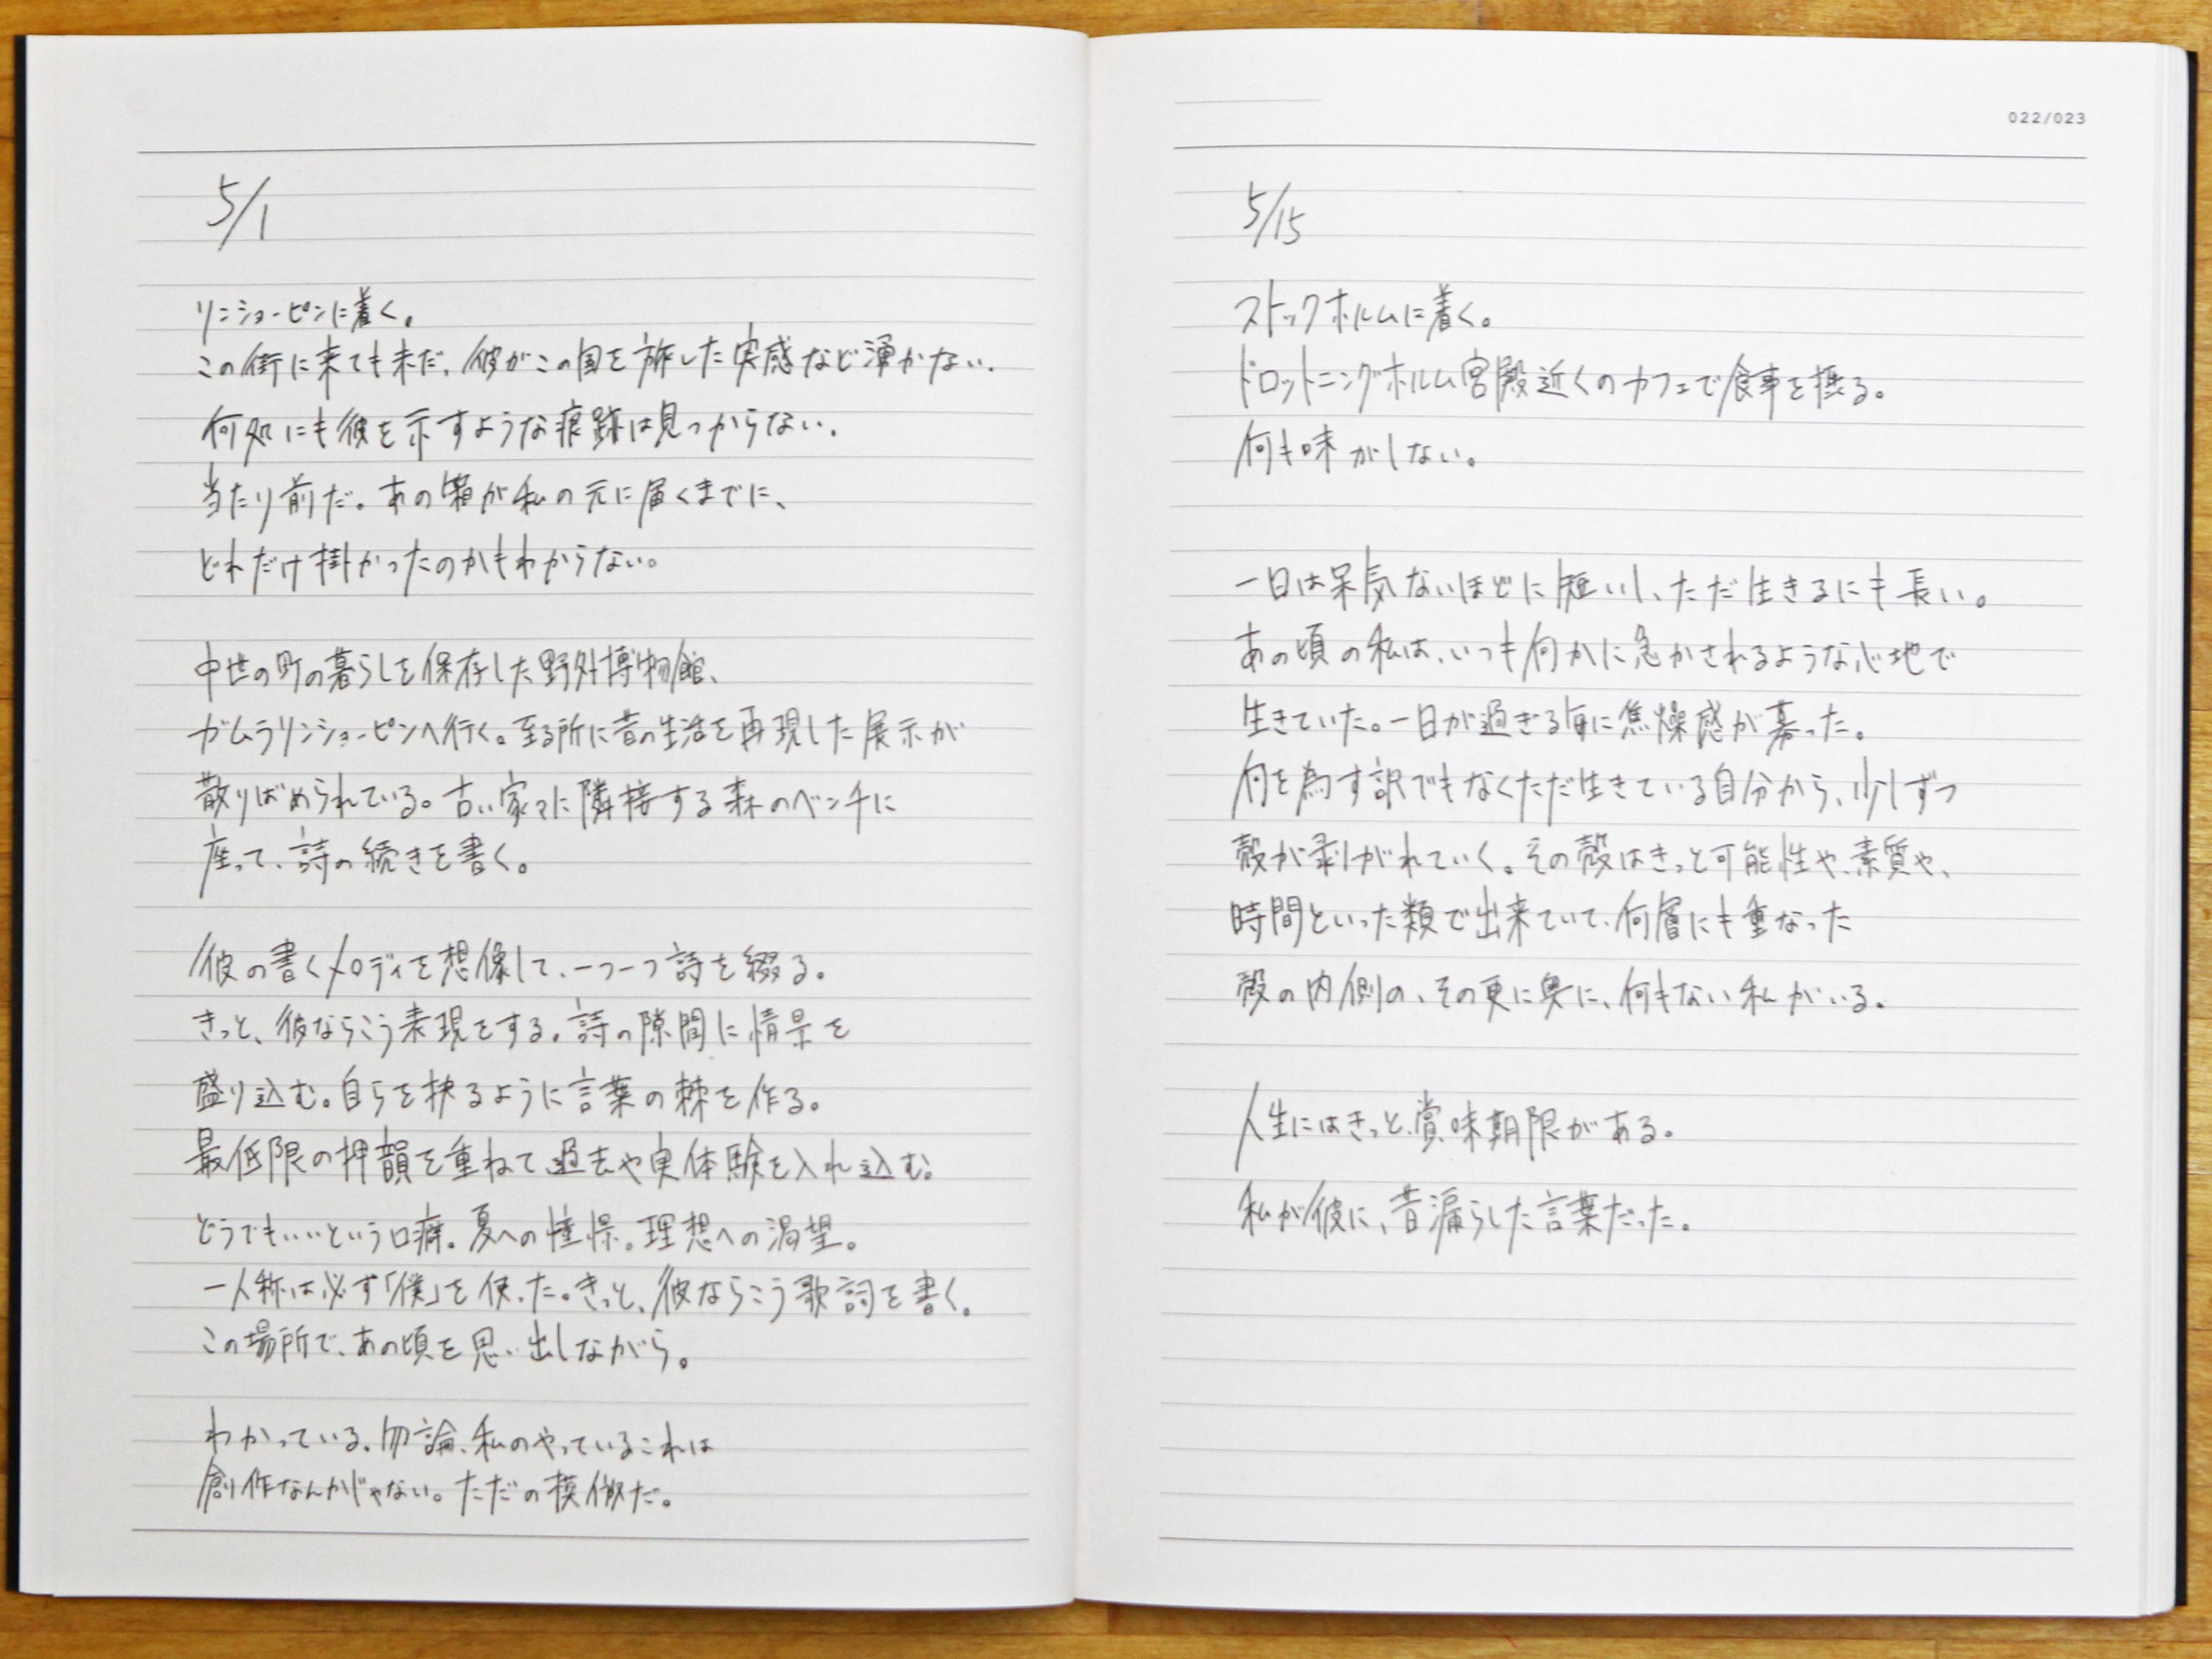 5/1
リンショーピンに着く。
この街に来ても未だ、彼がこの国を旅した実感など湧かない。
何処にも彼を示すような痕跡は見つからない。
当たり前だ。あの箱が私の元に届くまでに、
どれだけ掛かったのかもわからない。
中世の町の暮らしを保存した野外博物館、
ガムラリンショーピンへ行く。至る所に昔の生活を再現した展示が
散りばめられている。古い家々に隣接する森のベンチに
座って、詩の続きを書く。
彼の書くメロディを想像して、一つ一つ詩を綴る。
きっと、彼ならこう表現をする。詩の隙間に情景を
盛り込む。自らを抉るように言葉の棘を作る。
最低限の押韻を重ねて過去や実体験を入れ込む。
どうでもいいという口癖。夏への憧憬。理想への渇望。
一人称は必ず「僕」を使った。きっと、彼ならこう歌詞を書く。
この場所で、あの頃を思い出しながら。
わかっている。勿論、私のやっているこれは
創作なんかじゃない。ただの模倣だ。
022/023
5/15
ストックホルムに着く。
ドロットニングホルム宮殿近くのカフェで食事を摂る。
何も味がしない。
一日は呆気ないほどに短いし、ただ生きるにも長い。
あの頃の私は、いつも何かに急かされるような心地で
生きていた。一日が過ぎる毎に焦燥感が募った。
何を為す訳でもなくただ生きている自分から、少しずつ
殻が剥がれていく。その殻はきっと可能性や、素質や、
時間といった類で出来ていて、何層にも重なった
殻の内側の、その更に奥に、何もない私がいる。
人生にはきっと、賞味期限がある。
私が彼に、昔漏らした言葉だった。